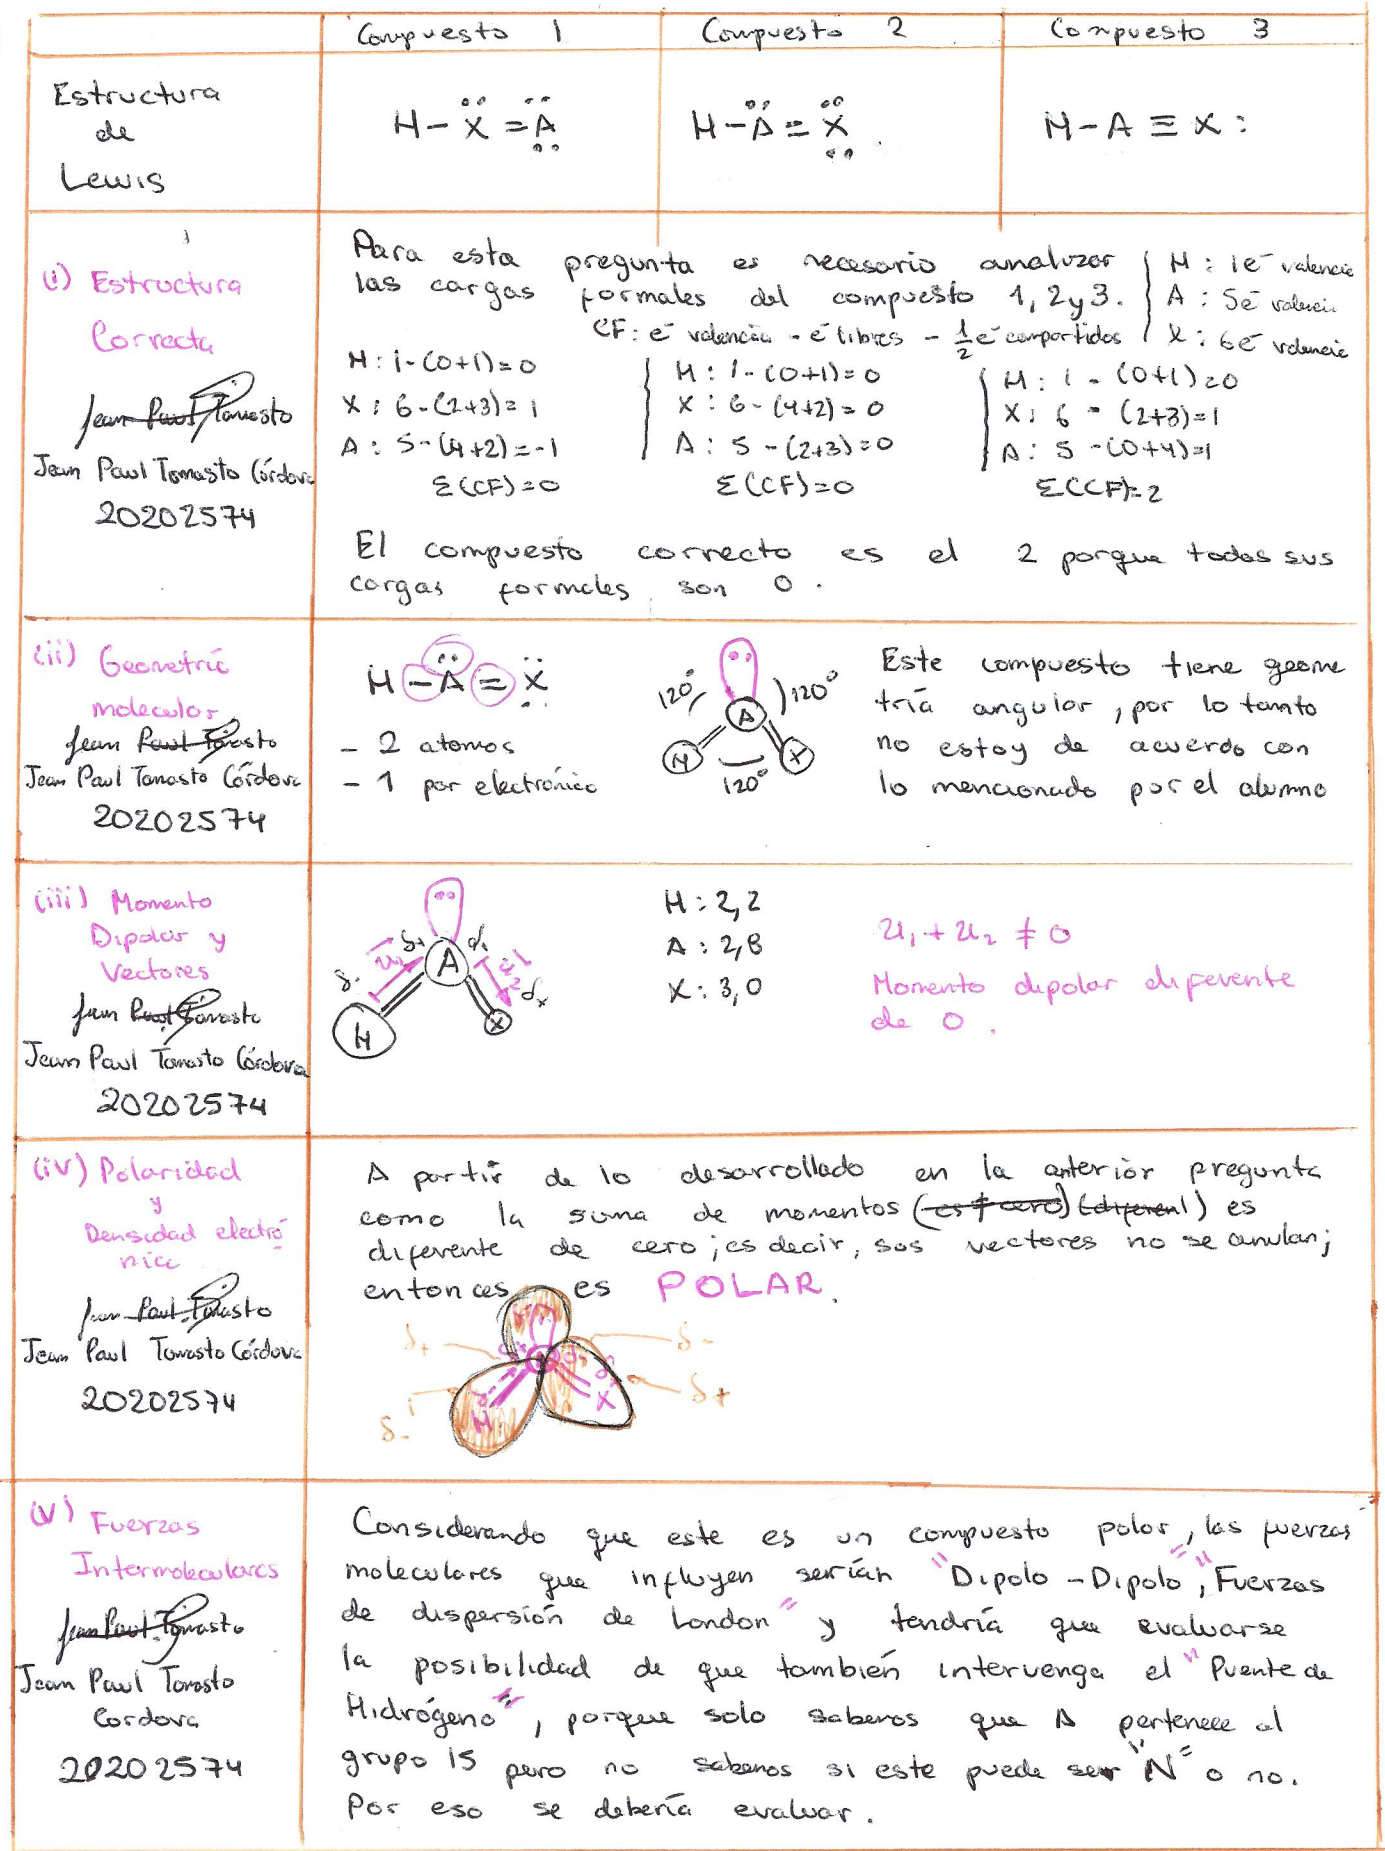 Compuesto 1 Compuesto 2 Compuesto 3
Estructura
de
Lewis
H - Ẍ = A
H - Ä = X
H - A ≡ X :
(i) Estructura
Correcta
Jean Paul Tomasto
Jean Paul Tomasto Córdova
20202574
Para esta pregunta es necesario analizar
las cargas formales del compuesto 1, 2 y 3.
H : 1e⁻ valencia
A : 5e⁻ valencia
X : 6e⁻ valencia
CF : e⁻ valencia - e⁻ libres - 1/2 e⁻ compartidos
H : 1-(0+1)=0
X : 6-(2+3)=1
A : 5-(4+2)=-1
Σ(CF)=0
H : 1-(0+1)=0
X : 6-(4+2)=0
A : 5-(2+3)=0
Σ(CF)=0
H : 1-(0+1)=0
X : 6-(2+3)=1
A : 5-(0+4)=1
Σ(CF)=2
El compuesto correcto es el 2 porque todas sus
cargas formales son 0.
(ii) Geometría
molecular
Jean Paul Tomasto
Jean Paul Tomasto Córdova
20202574
H - Ä = X
- 2 atomos
- 1 par electrónico
120° 120°
A
H X
120°
Este compuesto tiene geome
tría angular, por lo tanto
no estoy de acuerdo con
lo mencionado por el alumno
(iii) Momento
Dipolar y
Vectores
Jean Paul Tomasto
Jean Paul Tomasto Córdova
20202574
δ+ δ+
δ- u₁ A u₂ δ+
H X
H : 2,2
A : 2,8
X : 3,0
u₁ + u₂ ≠ 0
Momento dipolar diferente
de 0.
(iv) Polaridad
y
Densidad electró
nica
Jean Paul Tomasto
Jean Paul Tomasto Córdova
20202574
A partir de lo desarrollado en la anterior pregunta
como la suma de momentos (es ≠ cero) (diferent) es
diferente de cero; es decir, sus vectores no se anulan;
entonces es POLAR.
δ+ δ-
δ- H X δ+
(v) Fuerzas
Intermoleculares
Jean Paul Tomasto
Jean Paul Tomasto
Cordova
20202574
Considerando que este es un compuesto polar, las fuerzas
moleculares que influyen serían "Dipolo - Dipolo", "Fuerzas
de dispersión de London" y tendría que evaluarse
la posibilidad de que también intervenga el "Puente de
Hidrógeno", porque solo sabemos que A pertenece al
grupo 15 pero no sabemos si este puede ser "N" o no.
Por eso se debería evaluar.